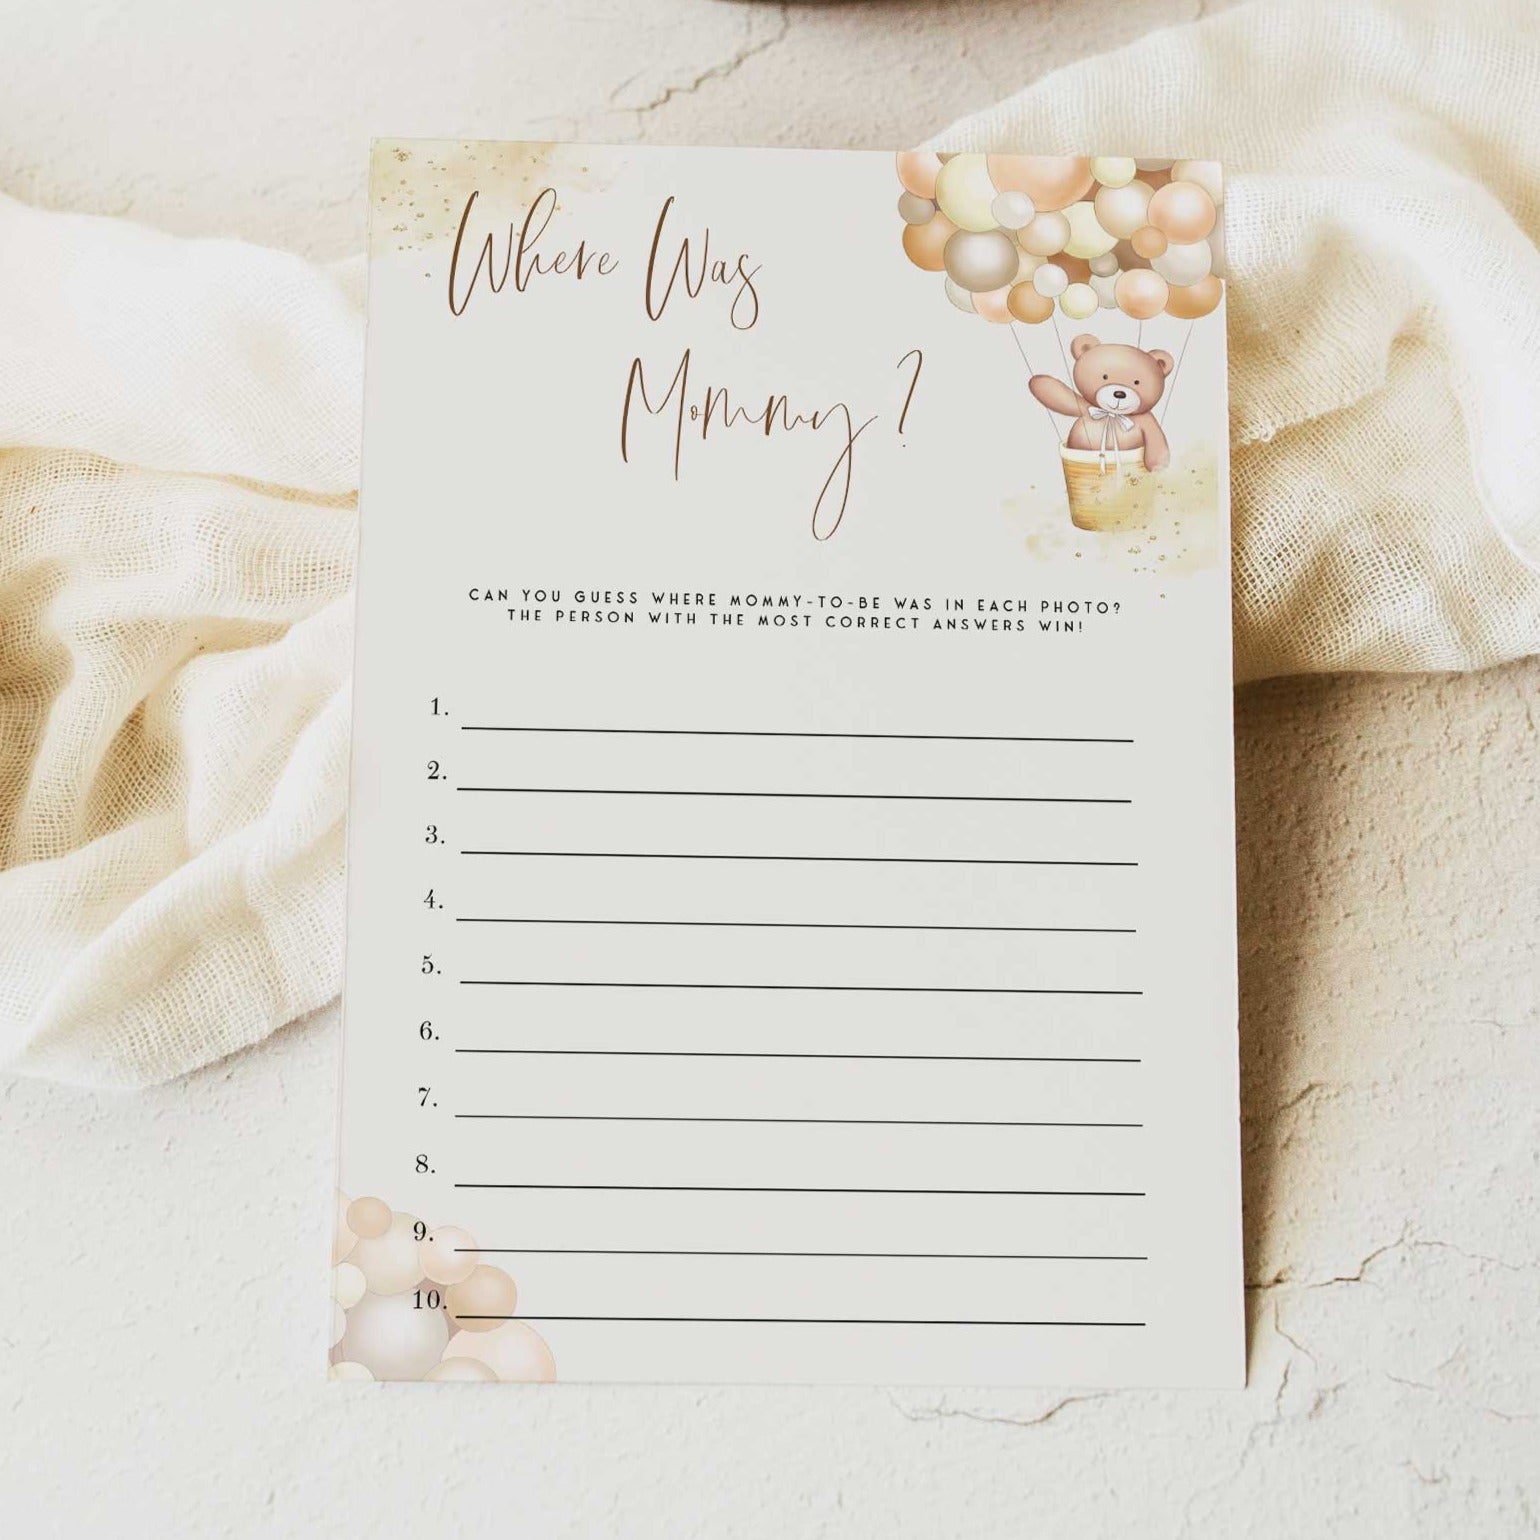 Where Was
Mommy?
CAN YOU GUESS WHERE MOMMY-TO-BE WAS IN EACH PHOTO?
THE PERSON WITH THE MOST CORRECT ANSWERS WIN!
1.
2.
3.
4.
5.
6.
7.
8.
9.
10.